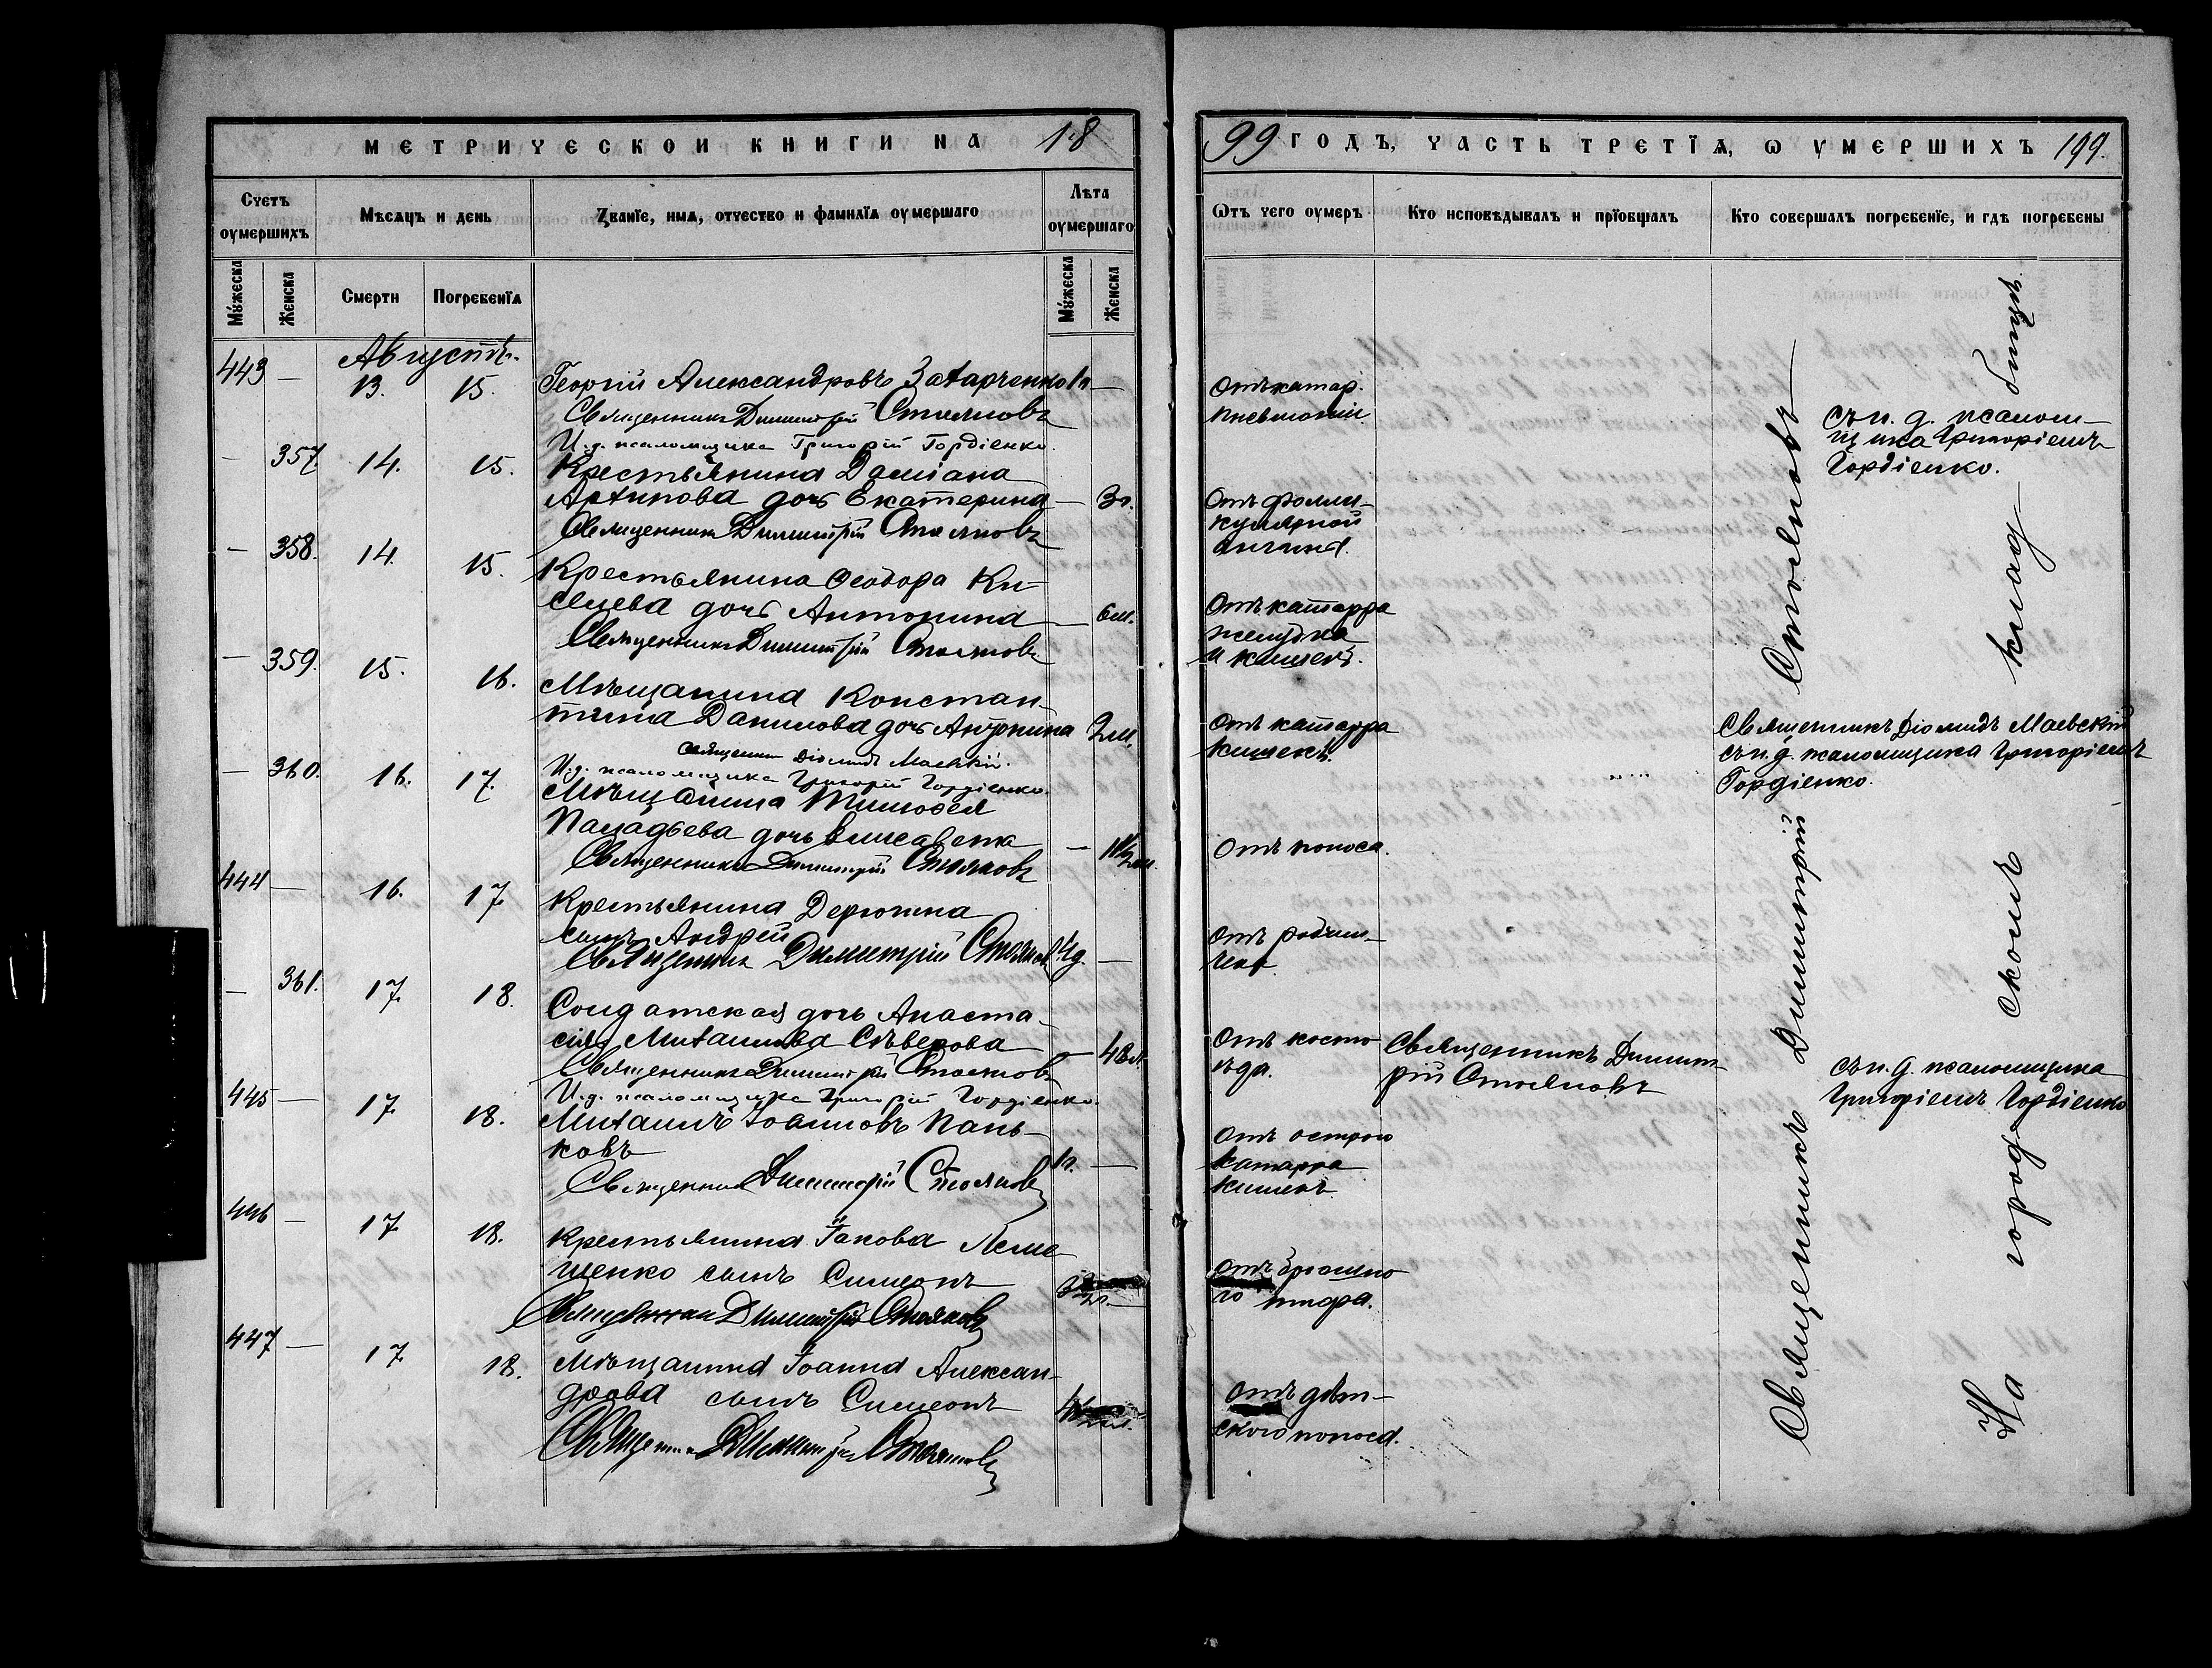 МЕТРИЧЕСКОЙ КНИГИ НА 18
99 ГОДЪ, ЧАСТЬ ТРЕТІѦ, Ѡ УМЕРШИХЪ 199.
Счетъ оумершихъ
Мѣсѧцъ и день
Званіе, имѧ, отчество и фамиліѧ оумершаго
Лѣта оумершаго
Мꙋжеска
Женска
Смерти
Погребеніѧ
Мꙋжеска
Женска
Ѿтъ чего оумеръ
Кто исповѣдывалъ и пріобщалъ
Кто совершалъ погребеніе, и гдѣ погребены
Августъ.
443 — 13. 15. Георгій Александровъ Захарченко 1 г. —
Священникъ Димитрій Стояновъ
И. д. псаломщика Григорій Гордіенко.
Отъ катар.
пневмоніи.
съ и. д. псалом-
щика Григоріемъ
Гордіенко.
— 357. 14. 15. Крестьянина Даміана
Архипова дочь Екатерина — 3 г.
Священникъ Димитрій Стояновъ
Отъ фолли-
кулярной
ангины.
— 358. 14. 15. Крестьянина Ѳеодора Ки-
селева дочь Антонина — 6 м.
Священникъ Димитрій Стояновъ
Отъ катарра
желудка
и кишекъ.
— 359. 15. 16. Мѣщанина Констан-
тина Данилова дочь Антонина 2 м.
Священникъ Діомидъ Маевскій.
И. д. псаломщика Григорій Гордіенко.
Отъ катарра
кишекъ.
Священникъ Діомидъ Маевскій
съ и. д. псаломщика Григоріемъ
Гордіенко.
— 360. 16. 17. Мѣщанина Тимоѳея
Паладьева дочь Елисавета —
Священникъ Димитрій Стояновъ
Отъ поноса.
444 — 16. 17. Крестьянина Дерюгина
сынъ Андрей
Священникъ Димитрій Стояновъ
Отъ родим-
чека.
— 361. 17. 18. Солдатская дочь Анаста-
сія Михаилова Сѣверова — 48 л.
Священникъ Димитрій Стояновъ
И. д. псаломщика Григорій Гордіенко.
Отъ косто
ѣда.
Священникъ Димит-
рій Стояновъ
съ и. д. псаломщика
Григоріемъ Гордіенко
445 — 17. 18. Михаилъ Іоанновъ Пань-
ковъ 1 г. —
Священникъ Димитрій Стояновъ
Отъ остраго
катарра
кишекъ.
446 — 17. 18. Крестьянина Іакова Леме
щенко сынъ Симеонъ
Священникъ Димитрій Стояновъ
Отъ брюшно
го тифа.
447 — 17. 18. Мѣщанина Іоанна Алексан-
дрова сынъ Симеонъ
Священникъ Димитрій Стояновъ
Отъ дѣт-
скаго поноса.
Священникъ Димитрій Стояновъ
На городскомъ кладбищѣ.